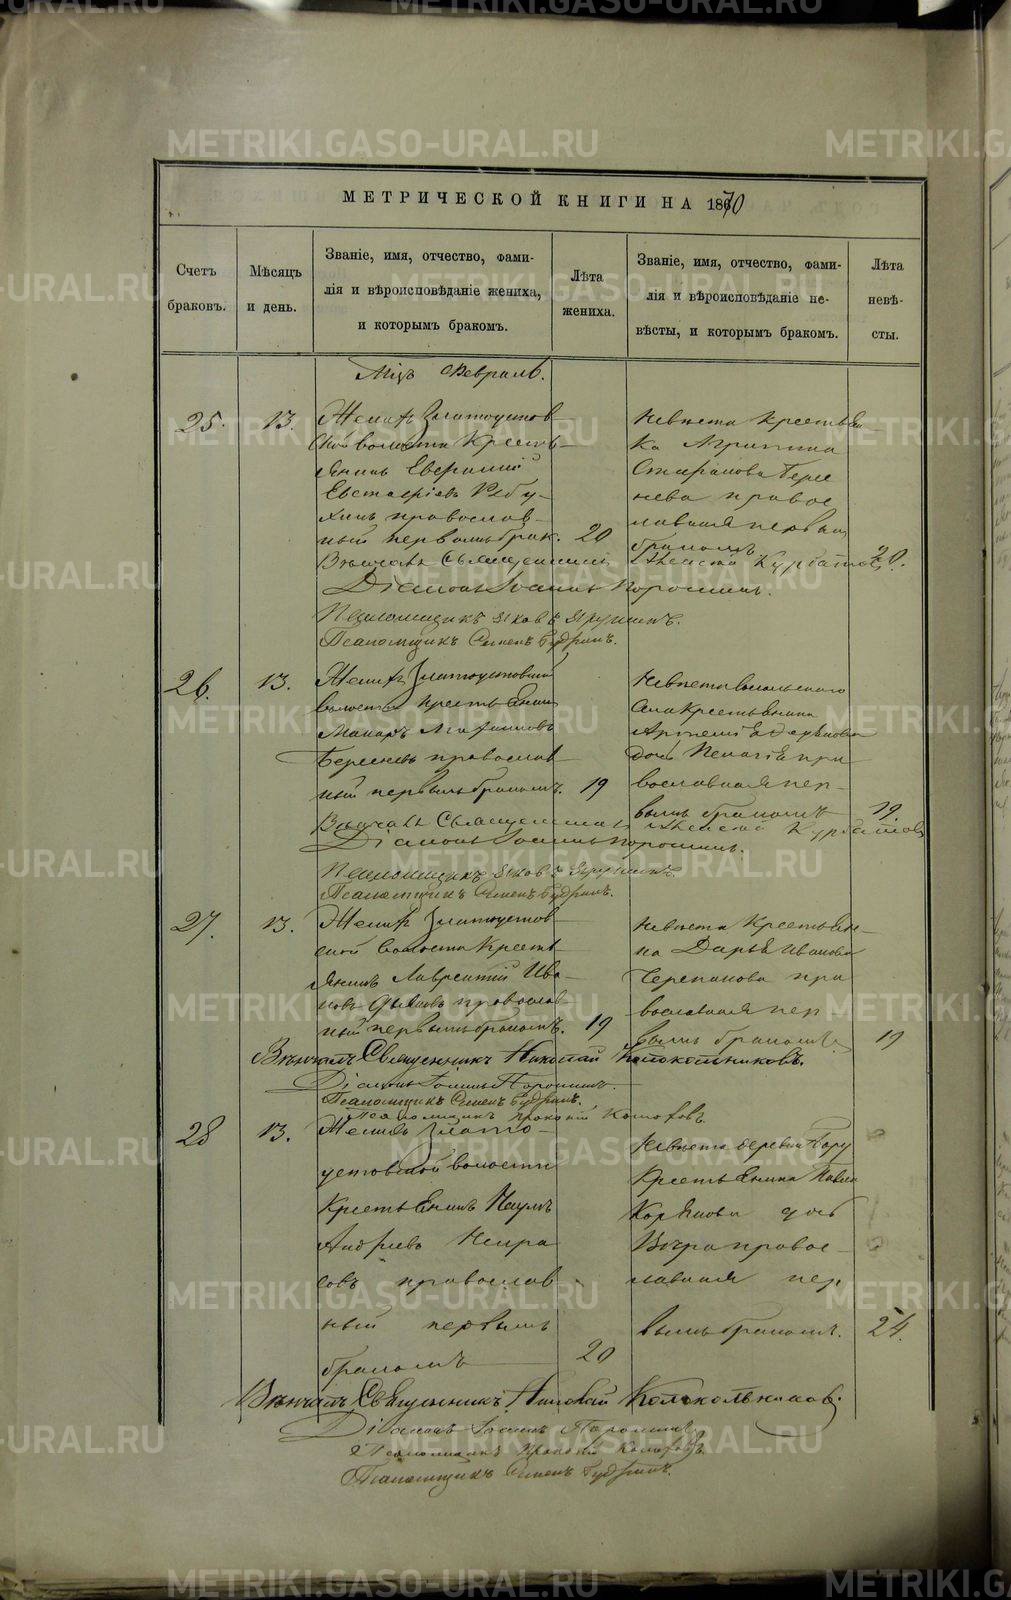 МЕТРИЧЕСКОЙ КНИГИ НА 1870
Счетъ браковъ.
Мѣсяцъ и день.
Званіе, имя, отчество, фами-
лія и вѣроисповѣданіе жениха,
и которымъ бракомъ.
Лѣта жениха.
Званіе, имя, отчество, фами-
лія и вѣроисповѣданіе не-
вѣсты, и которымъ бракомъ.
Лѣта невѣ-
сты.
Мцъ Февраль.
25. 13.
Женихъ Златоустов
ской волости Кресть-
янинъ
Евстафіевъ
православ-
ный первымъ брак. 20
Невѣста Крестьян-
ка Агрипина
Бере
нева правос
лавная первым
бракомъ 20.
Вѣнчалъ Священникъ Алексѣй Курбатовъ
Діаконъ Іоаннъ Порошинъ.
Псаломщикъ Яковъ
Псаломщикъ Семенъ Будринъ.
26. 13.
Женихъ Златоустовской
волости крестьянинъ
Макаръ
Береневъ православ
ный первымъ бракомъ. 19
Невѣста
села Крестьянина
Артемія
дочь Пелагія пра
вославная пер
вымъ бракомъ 19.
Вѣнчалъ Священникъ Алексѣй Курбатовъ
Діаконъ Іоаннъ Порошинъ.
Псаломщикъ Яковъ
Псаломщикъ Семенъ Будринъ.
27. 13.
Женихъ Златоустов
ской волости Кресть
янинъ Лаврентій Ива-
новъ православ
ный первымъ бракомъ. 19
Невѣста Крестьян-
ка Дарья Иванова
Черепанова пра
вославная пер
вымъ бракомъ. 19
Вѣнчалъ Священникъ Николай Колокольниковъ.
Діаконъ Іоаннъ Порошинъ.
Псаломщикъ Семенъ Будринъ.
Псаломщикъ Прокопій
28 13.
Женихъ Злато-
устовской волости
Крестьянинъ Наумъ
Андреевъ Некра
совъ православ
ный первымъ
бракомъ 20
Невѣста деревни
Крестьянина Павла
дочь
Вѣра правос-
лавная пер
вымъ бракомъ. 24.
Вѣнчалъ Священникъ Николай Колокольниковъ.
Діаконъ Іоаннъ Порошинъ
Псаломщикъ Прокопій
Псаломщикъ Семенъ Будринъ.
METRIKI.GASO-URAL.RU